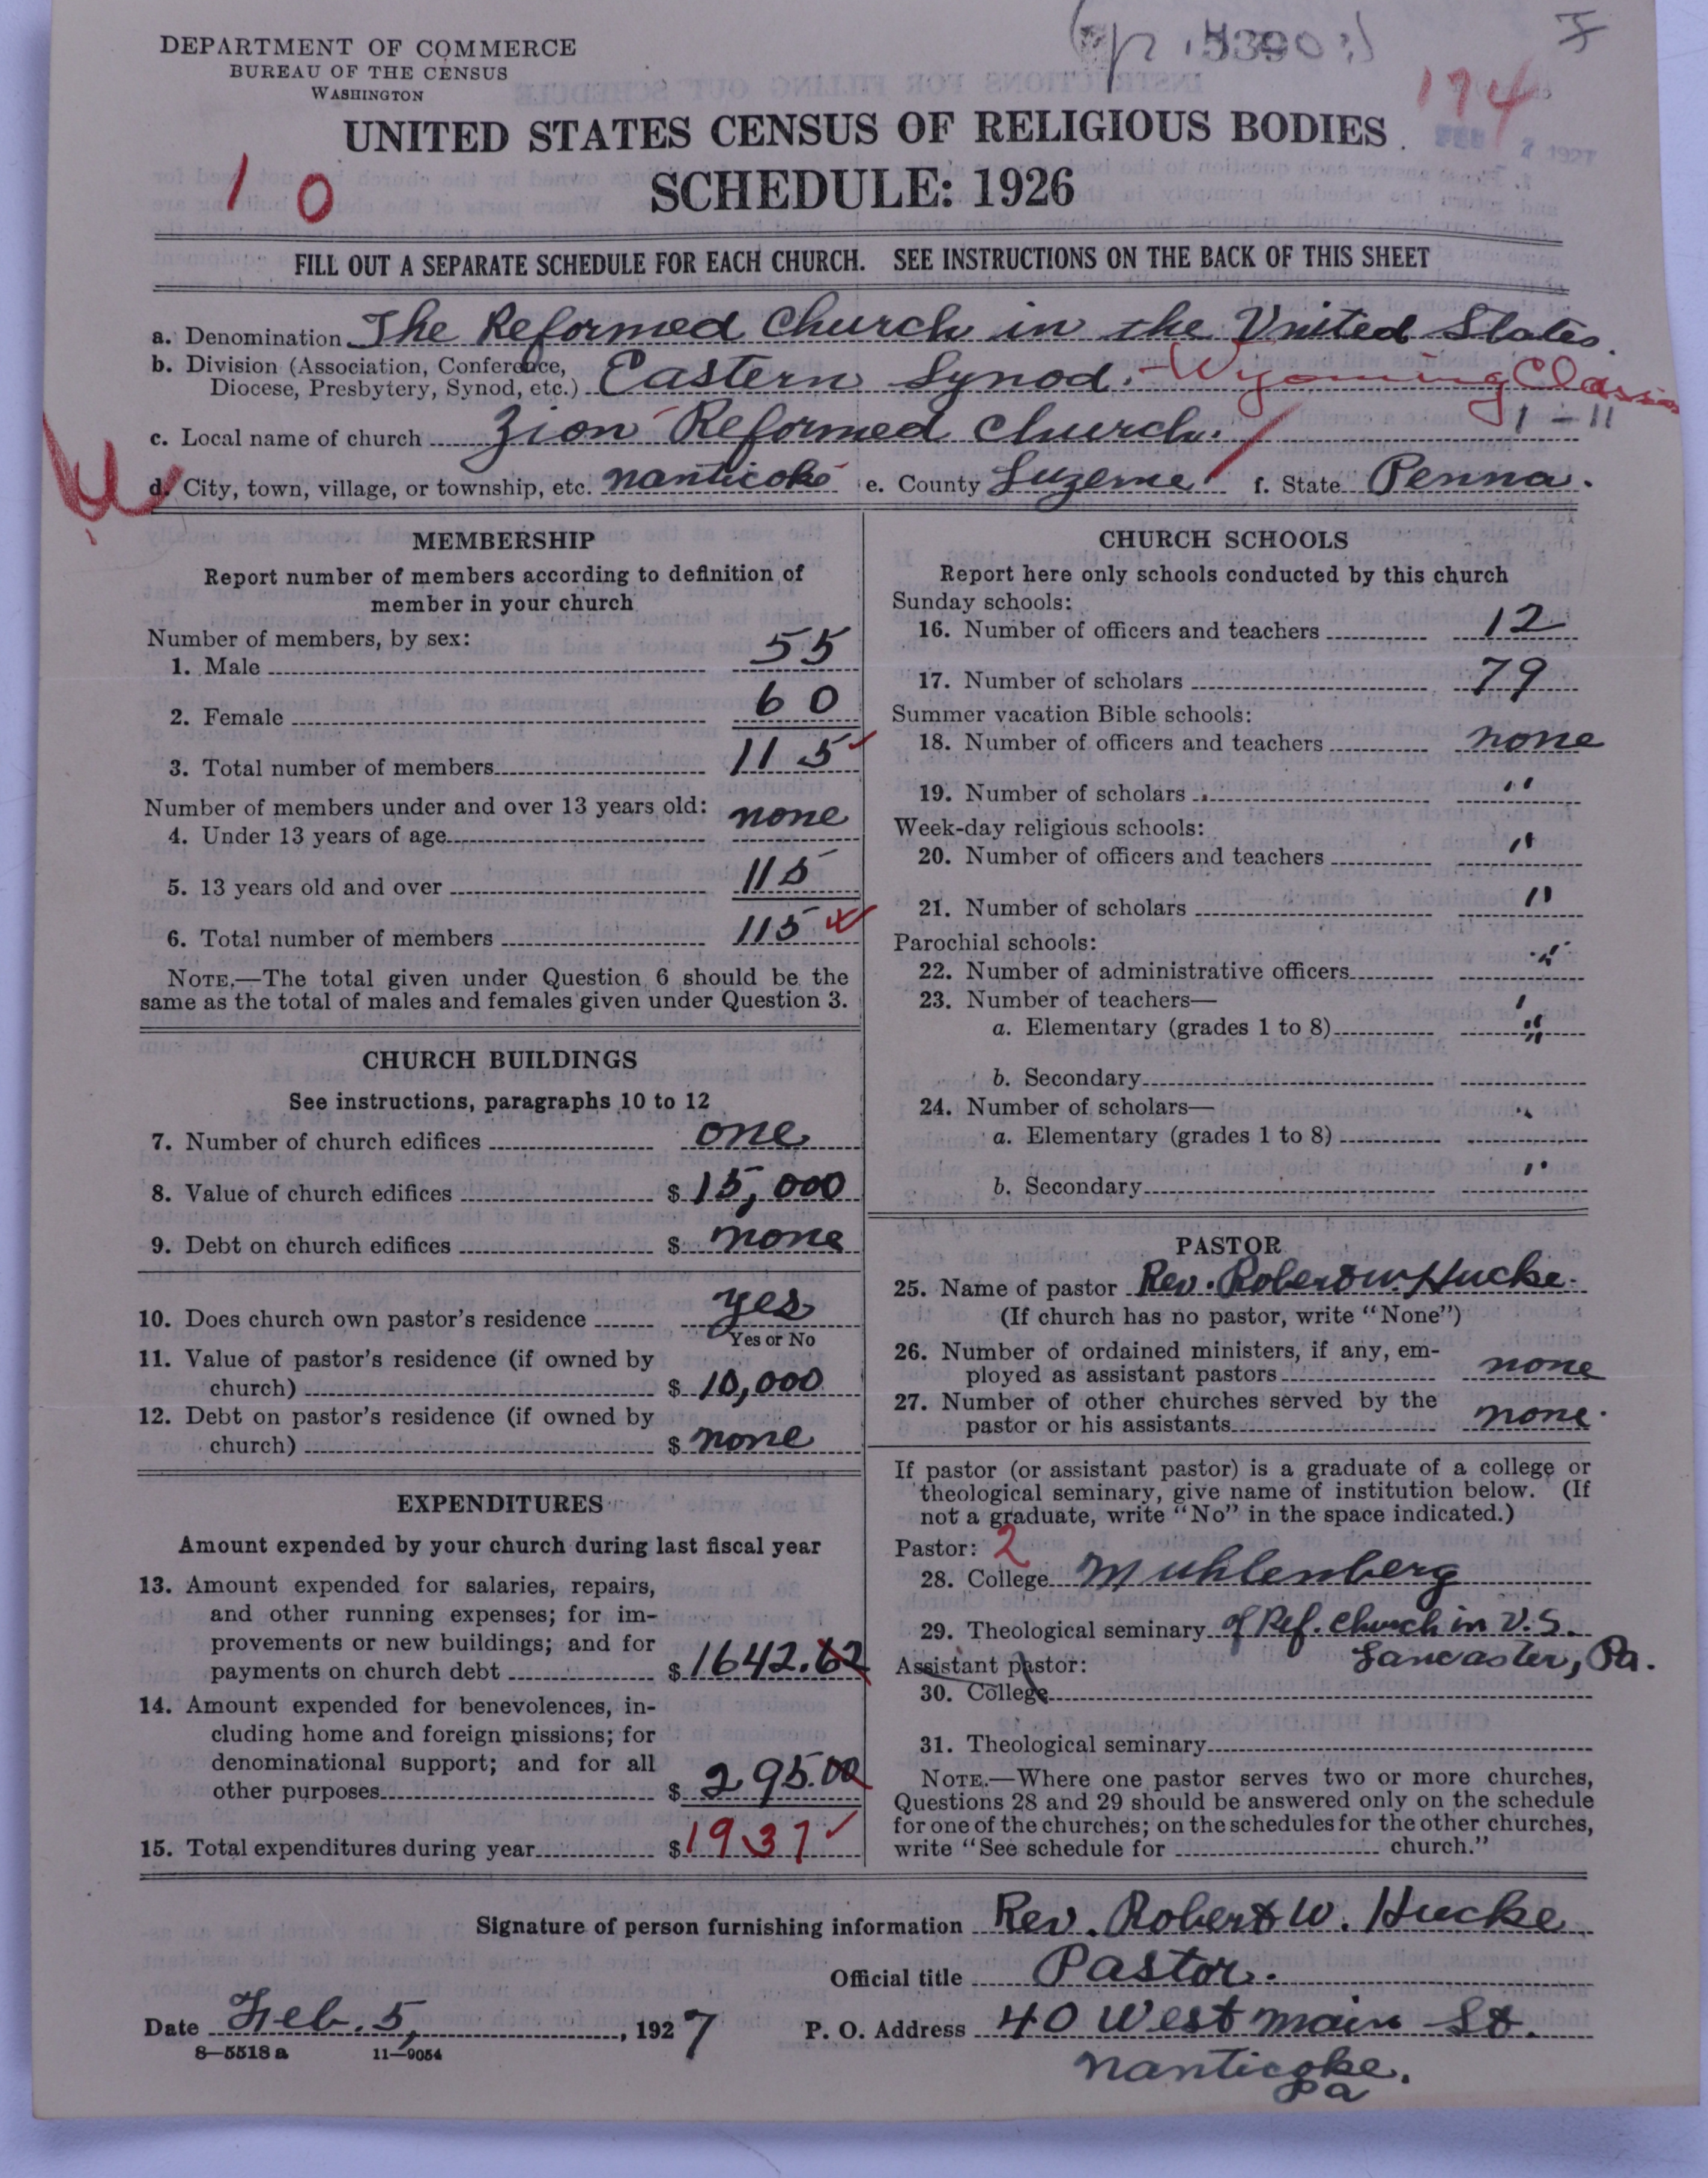 DEPARTMENT OF COMMERCE
BUREAU OF THE CENSUS
WASHINGTON
174
FEB 7 1927
UNITED STATES CENSUS OF RELIGIOUS BODIES
1 0
SCHEDULE: 1926
FILL OUT A SEPARATE SCHEDULE FOR EACH CHURCH. SEE INSTRUCTIONS ON THE BACK OF THIS SHEET
a. Denomination The Reformed Church in the United States.
b. Division (Association, Conference, Diocese, Presbytery, Synod, etc.) Eastern Synod. - Wyoming Classis
c. Local name of church Zion Reformed Church. 1 - 11
d. City, town, village, or township, etc. Nanticoke e. County Luzerne f. State Penna.
MEMBERSHIP
Report number of members according to definition of
member in your church
Number of members, by sex:
1. Male 55
2. Female 60
3. Total number of members 115
Number of members under and over 13 years old:
4. Under 13 years of age none
5. 13 years old and over 115
6. Total number of members 115
NOTE.—The total given under Question 6 should be the
same as the total of males and females given under Question 3.
CHURCH BUILDINGS
See instructions, paragraphs 10 to 12
7. Number of church edifices one
8. Value of church edifices $ 15,000
9. Debt on church edifices $ none
10. Does church own pastor's residence yes
Yes or No
11. Value of pastor's residence (if owned by
church) $ 10,000
12. Debt on pastor's residence (if owned by
church) $ none
EXPENDITURES
Amount expended by your church during last fiscal year
13. Amount expended for salaries, repairs,
and other running expenses; for im-
provements or new buildings; and for
payments on church debt $ 1642.62
14. Amount expended for benevolences, in-
cluding home and foreign missions; for
denominational support; and for all
other purposes $ 295.00
15. Total expenditures during year $ 1937
CHURCH SCHOOLS
Report here only schools conducted by this church
Sunday schools:
16. Number of officers and teachers 12
17. Number of scholars 79
Summer vacation Bible schools:
18. Number of officers and teachers none
19. Number of scholars "
Week-day religious schools:
20. Number of officers and teachers "
21. Number of scholars "
Parochial schools:
22. Number of administrative officers "
23. Number of teachers—
a. Elementary (grades 1 to 8) "
b. Secondary
24. Number of scholars—
a. Elementary (grades 1 to 8) "
b. Secondary "
PASTOR
25. Name of pastor Rev. Robert W. Hucke.
(If church has no pastor, write "None")
26. Number of ordained ministers, if any, em-
ployed as assistant pastors none
27. Number of other churches served by the
pastor or his assistants none.
If pastor (or assistant pastor) is a graduate of a college or
theological seminary, give name of institution below. (If
not a graduate, write "No" in the space indicated.)
Pastor: 2
28. College Muhlenberg
29. Theological seminary of Ref. Church in U.S.
Lancaster, Pa.
Assistant pastor:
30. College
31. Theological seminary
NOTE.—Where one pastor serves two or more churches,
Questions 28 and 29 should be answered only on the schedule
for one of the churches; on the schedules for the other churches,
write "See schedule for church."
Signature of person furnishing information Rev. Robert W. Hucke
Official title Pastor.
Date Feb. 5, 1927 P. O. Address 40 West Main St.
Nanticoke,
Pa
8—5518 a 11—9054